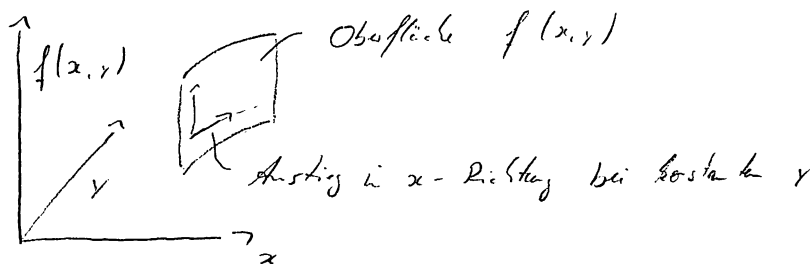 f(x,y)
Oberfläche f(x,y)
y
Anstieg in x-Richtung bei konstantem y
x